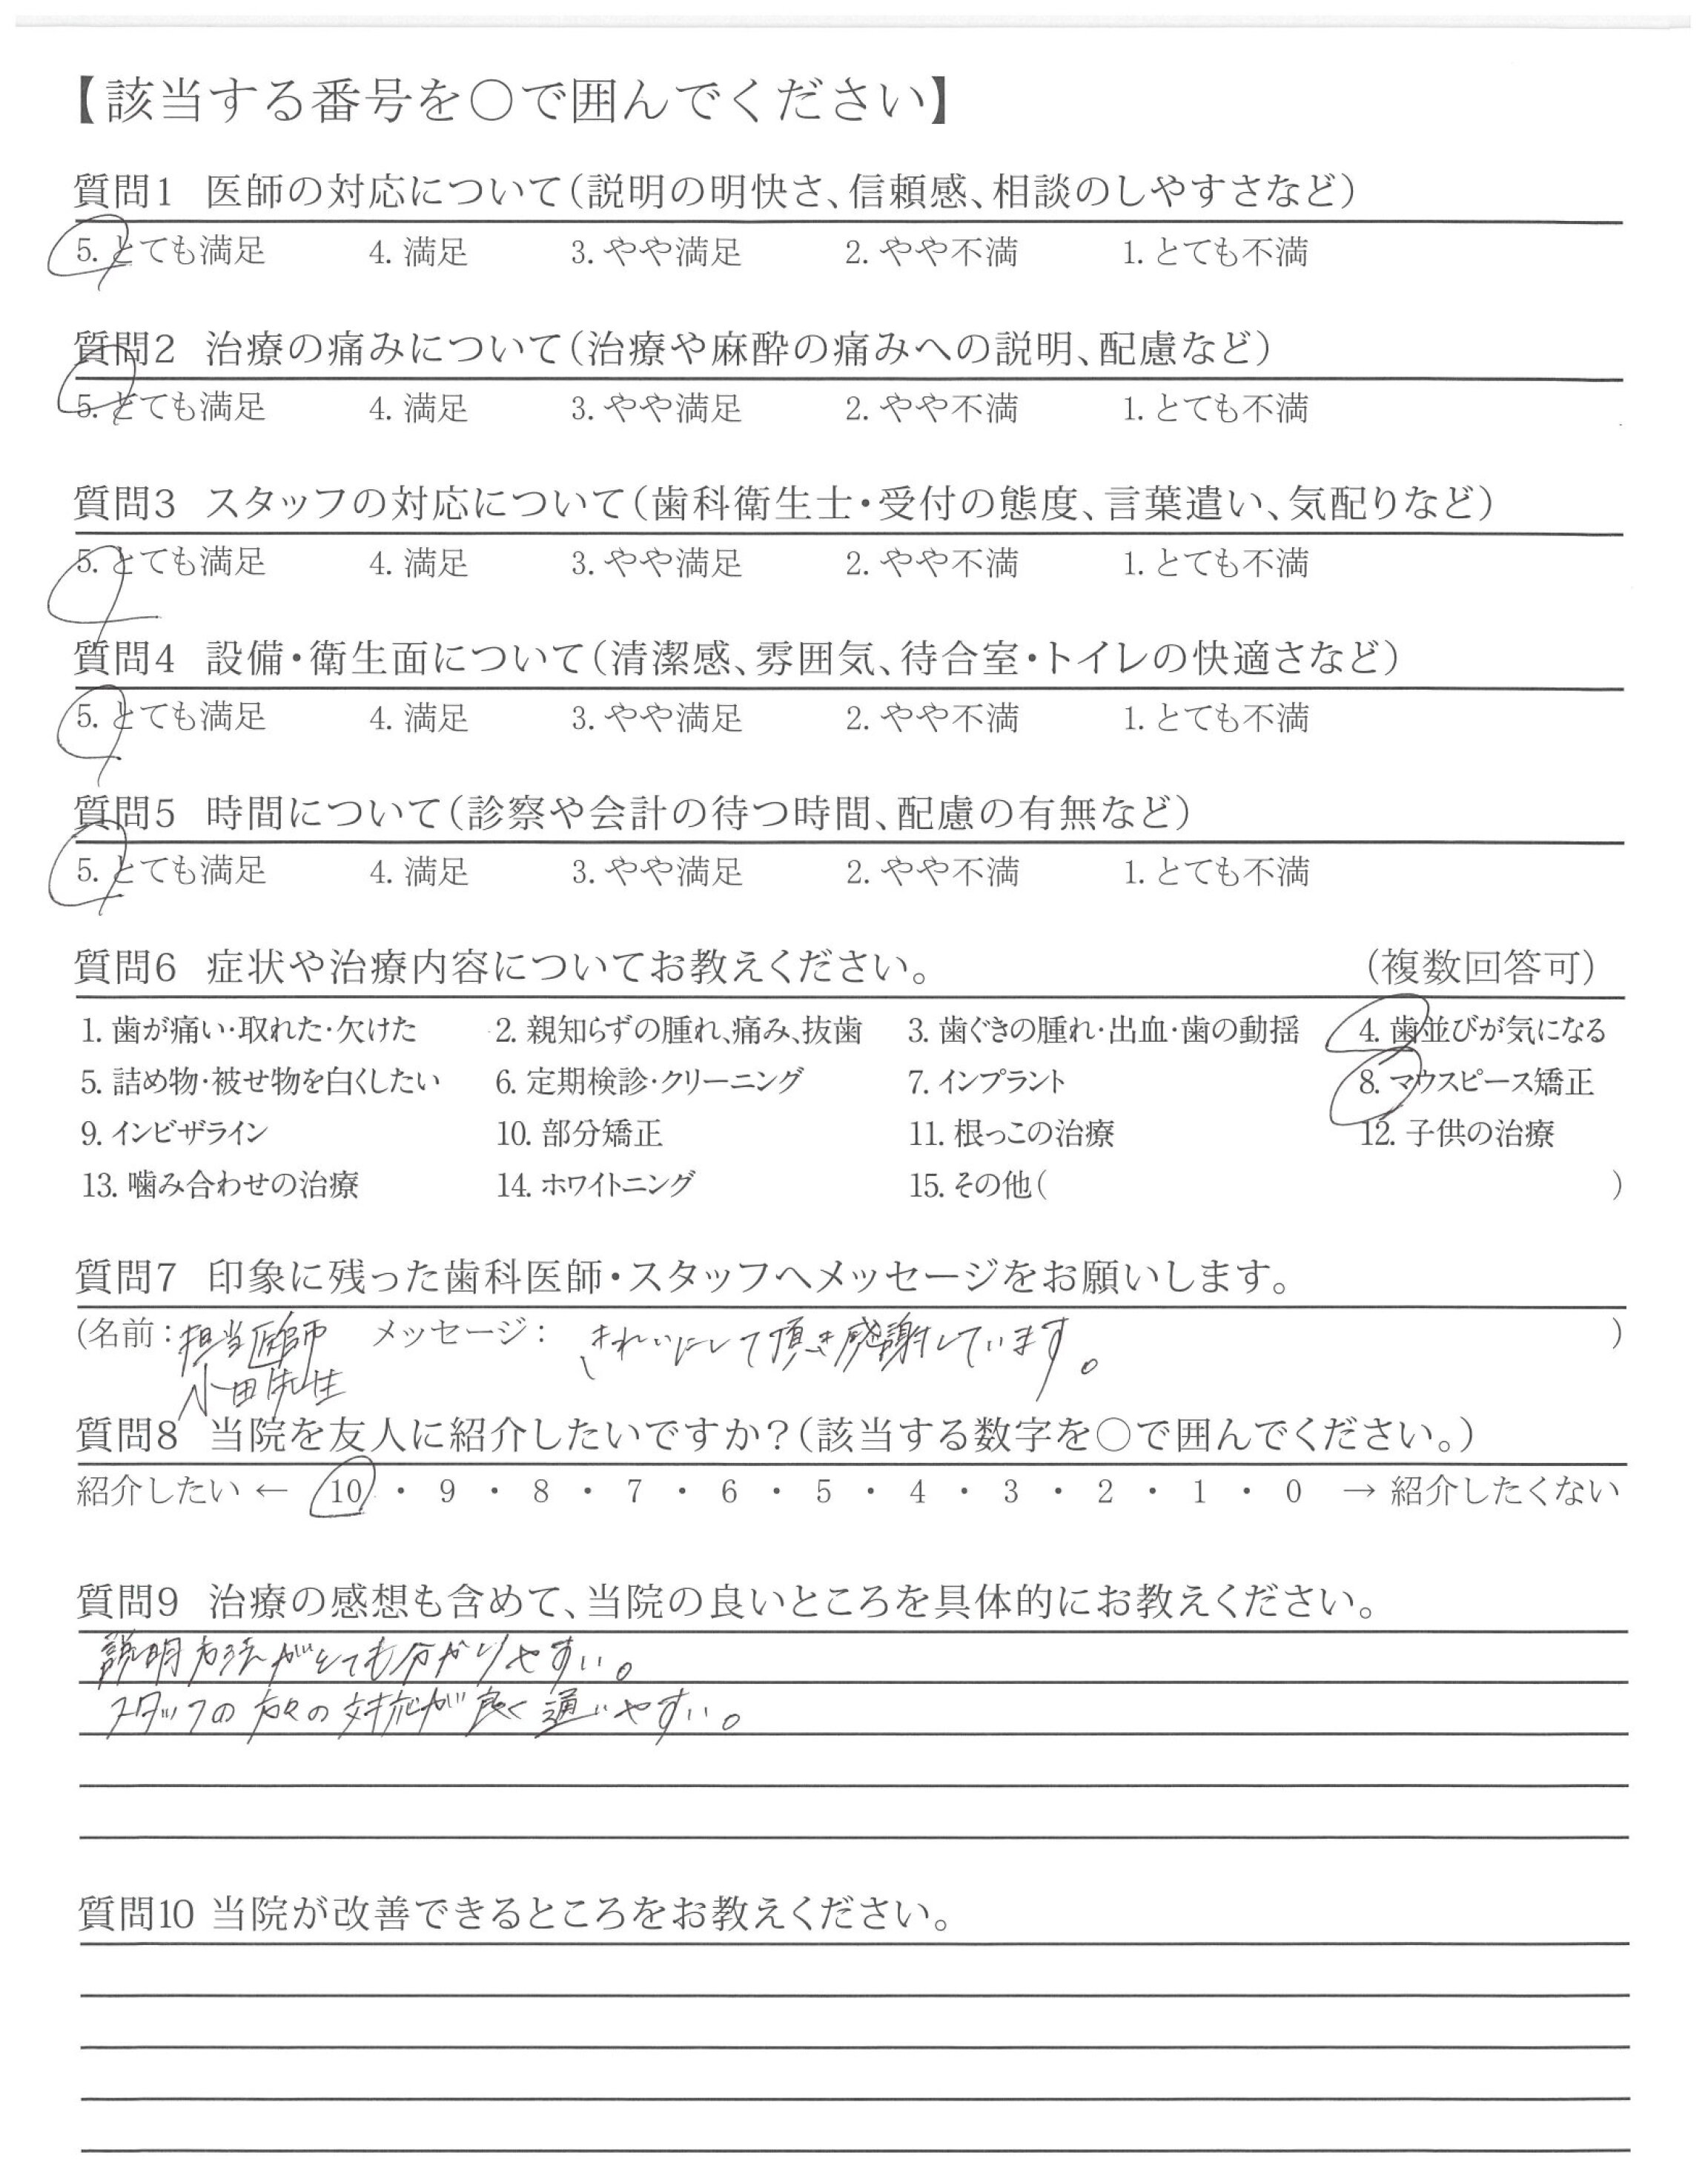 【該当する番号を○で囲んでください】
質問1 医師の対応について（説明の明快さ、信頼感、相談のしやすさなど）
5. とても満足 4. 満足 3. やや満足 2. やや不満 1. とても不満
質問2 治療の痛みについて（治療や麻酔の痛みへの説明、配慮など）
5. とても満足 4. 満足 3. やや満足 2. やや不満 1. とても不満
質問3 スタッフの対応について（歯科衛生士・受付の態度、言葉遣い、気配りなど）
5. とても満足 4. 満足 3. やや満足 2. やや不満 1. とても不満
質問4 設備・衛生面について（清潔感、雰囲気、待合室・トイレの快適さなど）
5. とても満足 4. 満足 3. やや満足 2. やや不満 1. とても不満
質問5 時間について（診察や会計の待つ時間、配慮の有無など）
5. とても満足 4. 満足 3. やや満足 2. やや不満 1. とても不満
質問6 症状や治療内容についてお教えください。 （複数回答可）
1. 歯が痛い・取れた・欠けた 2. 親知らずの腫れ、痛み、抜歯 3. 歯ぐきの腫れ・出血・歯の動揺 4. 歯並びが気になる
5. 詰め物・被せ物を白くしたい 6. 定期検診・クリーニング 7. インプラント 8. マウスピース矯正
9. インビザライン 10. 部分矯正 11. 根っこの治療 12. 子供の治療
13. 噛み合わせの治療 14. ホワイトニング 15. その他（ ）
質問7 印象に残った歯科医師・スタッフへメッセージをお願いします。
（名前：担当医師 メッセージ： きれいにして頂き感謝しています。 ）
小田先生
質問8 当院を友人に紹介したいですか？（該当する数字を○で囲んでください。）
紹介したい ← 10 ・ 9 ・ 8 ・ 7 ・ 6 ・ 5 ・ 4 ・ 3 ・ 2 ・ 1 ・ 0 → 紹介したくない
質問9 治療の感想も含めて、当院の良いところを具体的にお教えください。
説明方法がとても分かりやすい。
スタッフの方々の対応が良く通いやすい。
質問10 当院が改善できるところをお教えください。